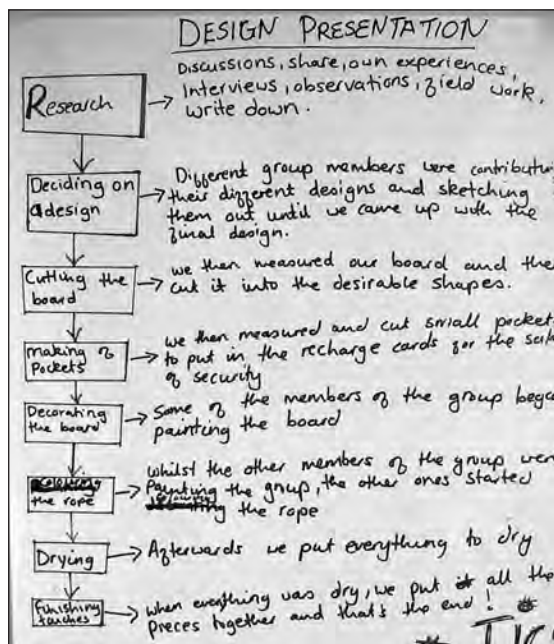 DESIGN PRESENTATION
Research
Discussions, share, own experiences,
Interviews, observations, field work,
write down.
Deciding on
a design
Different group members were contributing
their different designs and sketching
them out until we came up with the
final design.
Cutting the
board
we then measured our board and the
cut it into the desirable shapes.
making of
Pockets
we then measured and cut small pocket
to put in the recharge cards for the
of security
Decorating
the board
Some of the members of the group bega
painting the board
the rope
whilst the other members of the group wer
Painting the group, the other ones started
the rope
Drying
Afterwards we put everything to dry
Funishing
touches
when everything was dry, we put all the
pieces together and that's the end!